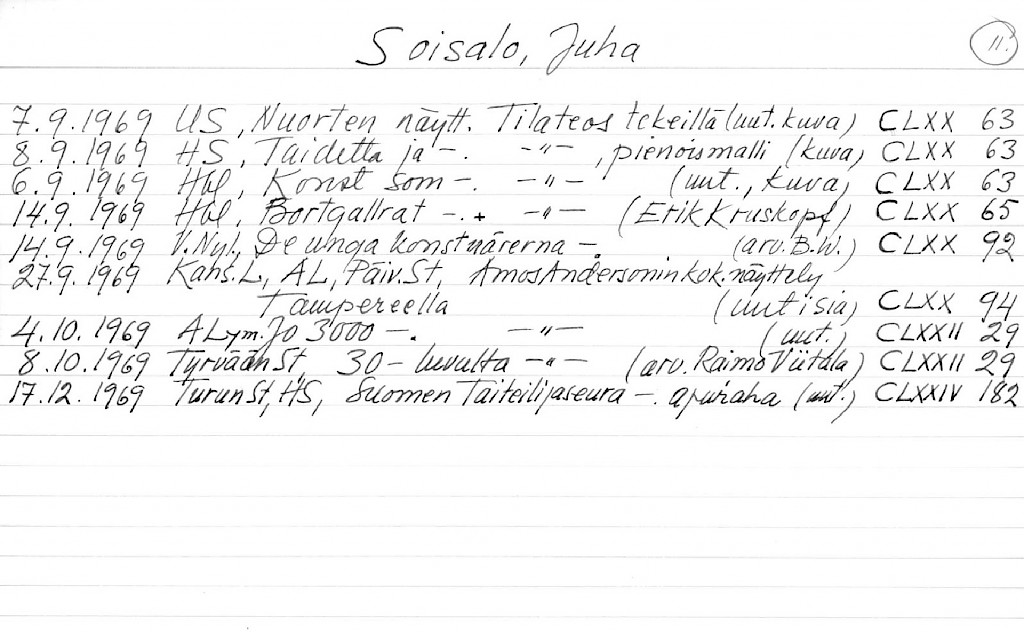 Soisalo, Juha 11.
7.9.1969 US, Nuorten näytt. Tilateos tekeillä (uut. kuva) CLXX 63
8.9.1969 HS, Taidetta ja –. –"– , pienoismalli (kuva) CLXX 63
6.9.1969 Hbl, Konst som –. –"– (uut., kuva) CLXX 63
14.9.1969 Hbl, Bortgallrat –.+ –"– (Erik Kruskopf) CLXX 65
14.9.1969 V.Nyl, De unga konstnärerna –. (arv. B.W.) CLXX 92
27.9.1969 Kans.L, AL, Päiv.St, Amos Andersonin kok. näyttely
Tampereella (uutisia) CLXX 94
4.10.1969 AL ym. Jo 3000 –. –"– (uut.) CLXXII 29
8.10.1969 Tyrvään St, 30-luvulta –"– (arv. Raimo Viitala) CLXXII 29
17.12.1969 Turun St, HS, Suomen Taiteilijaseura –. apuraha (uut.) CLXXIV 182